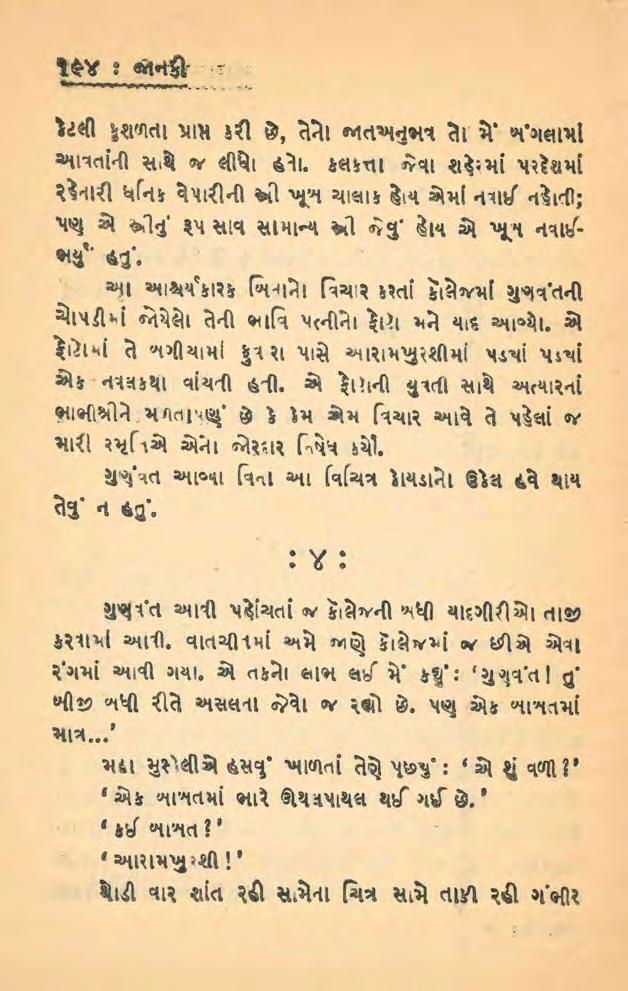 ૧૯૪ : જાનકી
કેટલી કુશળતા પ્રાપ્ત કરી છે, તેનો જાતઅનુભવ તો મેં બંગલામાં
આવતાંની સાથે જ લીધો હતો. કલકત્તા જેવા શહેરમાં પરદેશમાં
રહેનારી ધનિક વેપારીની સ્ત્રી ખૂબ ચાલાક હોય એમાં નવાઈ નહોતી;
પણ એ સ્ત્રીનું રૂપ સાવ સામાન્ય સ્ત્રી જેવું હોય એ ખૂબ નવાઈ-
ભર્યું હતું.
આ આશ્ચર્યકારક બિનાનો વિચાર કરતાં કૉલેજમાં ગુણવંતની
ચોપડીમાં જોયેલો તેની ભાવિ પત્નીનો ફોટો મને યાદ આવ્યો. એ
ફોટામાં તે બગીચામાં ફુવારા પાસે આરામખુરશીમાં પડ્યાં પડ્યાં
એક નવલકથા વાંચતી હતી. એ ફોટાની યુવતી સાથે અત્યારનાં
ભાભીશ્રીને મળતાપણું છે કે કેમ એમ વિચાર આવે તે પહેલાં જ
મારી સ્મૃતિએ એનો જોરદાર નિષેધ કર્યો.
ગુણવંત આવ્યા વિના આ વિચિત્ર કોયડાનો ઉકેલ હવે થાય
તેવું ન હતું.
: ૪ :
ગુણવંત આવી પહોંચતાં જ કૉલેજની બધી યાદગીરીઓ તાજી
કરવામાં આવી. વાતચીતમાં અમે જાણે કૉલેજમાં જ છીએ એવા
રંગમાં આવી ગયા. એ તકનો લાભ લઈ મેં કહ્યું : ‘ગુણવંત! તું
બીજી બધી રીતે અસલના જેવો જ રહ્યો છે. પણ એક બાબતમાં
માત્ર...’
મહા મુશ્કેલીએ હસવું ખાળતાં તેણે પૂછ્યું : ‘એ શું વળી?’
‘એક બાબતમાં ભારે ઊથલપાથલ થઈ ગઈ છે.’
‘કઈ બાબત?’
‘આરામખુરશી!’
થોડી વાર શાંત રહી સામેના ચિત્ર સામે તાકી રહી ગંભીર